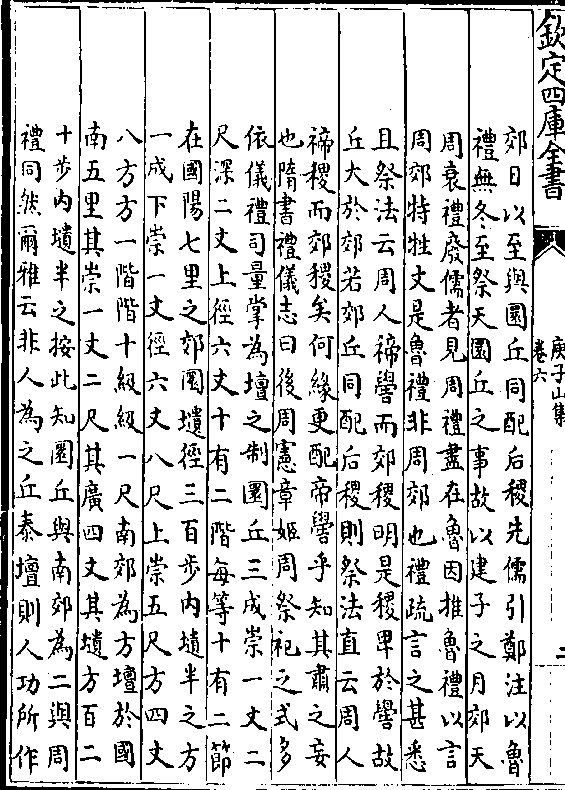 欽定四庫全書
庾子山集
卷六
二
郊日以至與圜丘同配后稷先儒引鄭注以魯
禮無冬至祭天圜丘之事故以建子之月郊天
周衰禮廢儒者見周禮盡在魯因推魯禮以言
周郊特牲文是魯禮非周郊也禮疏言之甚悉
且祭法云周人禘嚳而郊稷明是稷卑於嚳故
丘大於郊若郊丘同配后稷則祭法直云周人
禘稷而郊稷矣何緣更配帝嚳乎知其肅之妄
也隋書禮儀志曰後周憲章姬周祭祀之式多
依儀禮司量掌為壇之制圜丘三成崇一丈二
尺深二丈上徑六丈十有二階每等十有二節
在國陽七里之郊圜壝徑三百步内壝半之方
一成下崇一丈徑六丈八尺上崇五尺方四丈
八方方一階階十級級一尺南郊為方壇於國
南五里其崇一丈二尺其廣四丈其壝方百二
十步内壝半之按此知圜丘與南郊為二與周
禮同然爾雅云非人為之丘泰壇則人功所作